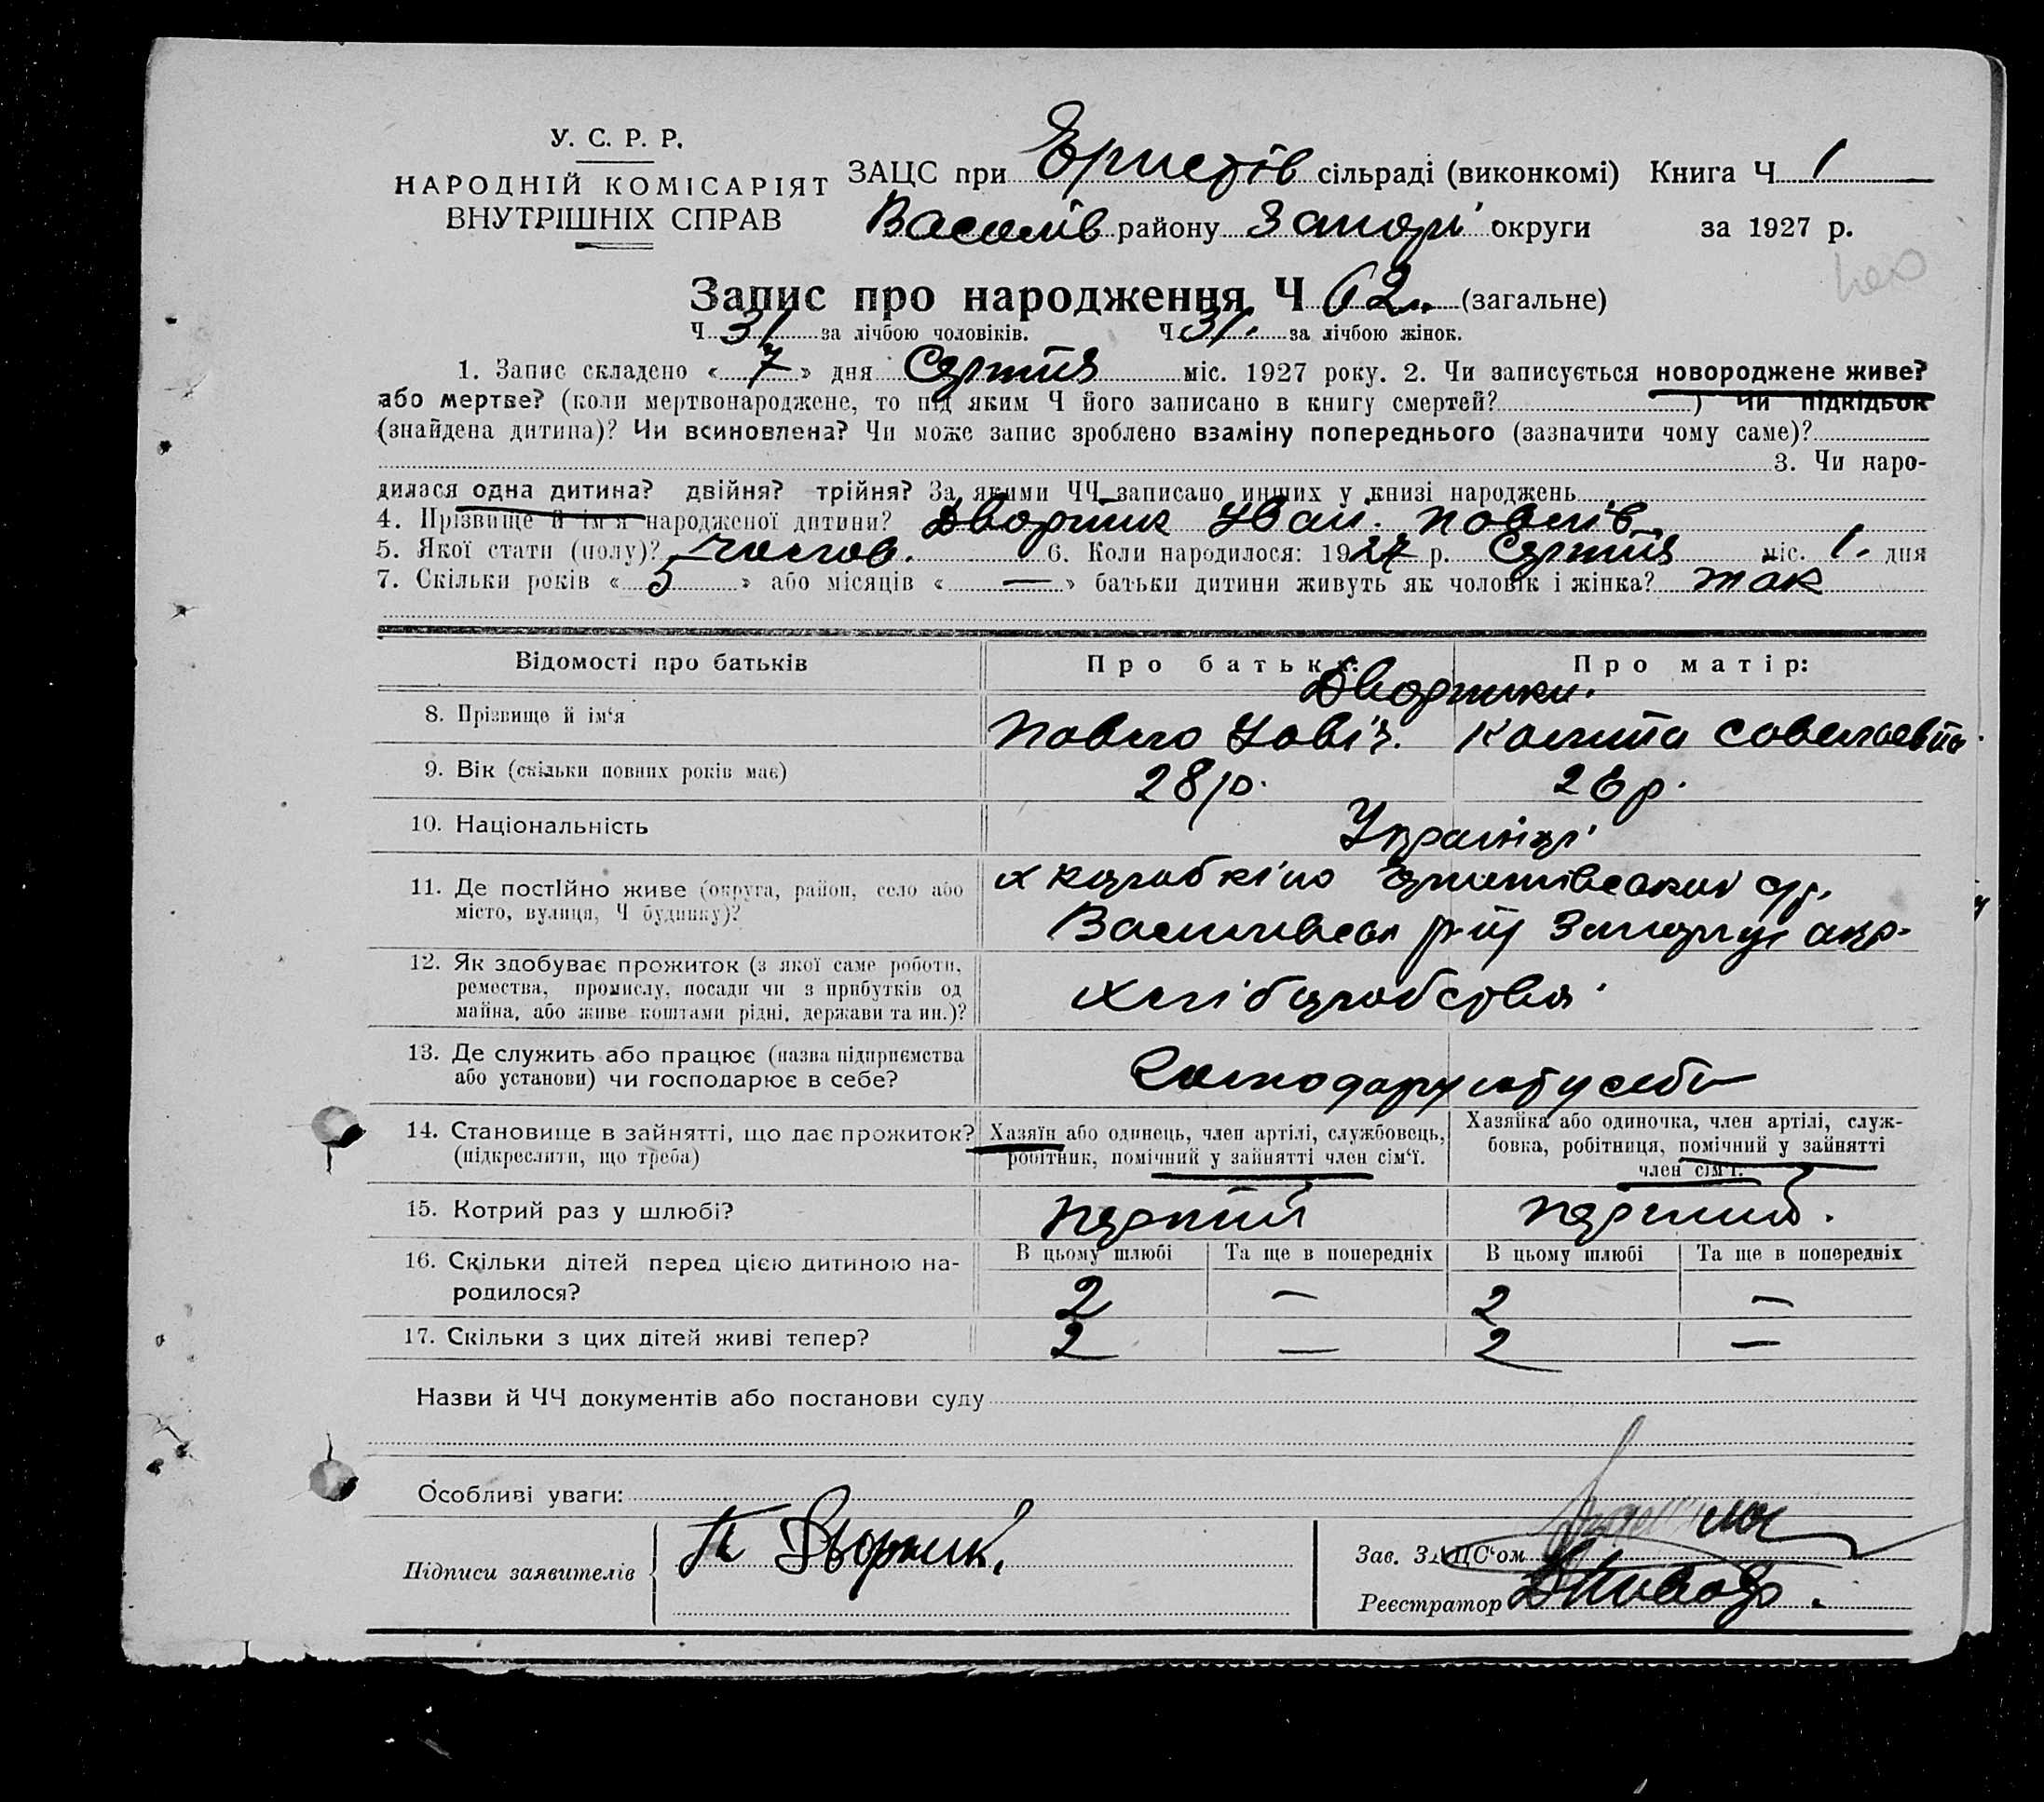 У. С. Р. Р.
НАРОДНІЙ КОМІСАРІЯТ
ВНУТРІШНІХ СПРАВ
ЗАЦС при Еристів сільраді (виконкомі) Книга Ч 1
Василів району Запорі округи за 1927 р.
Запис про народження Ч 62. (загальне)
Ч 31 за лічбою чоловіків. Ч 31. за лічбою жінок.
1. Запис складено « 7 » дня Серпня міс. 1927 року. 2. Чи записується новороджене живе?
або мертве? (коли мертвонароджене, то під яким Ч його записано в книгу смертей? ) Чи підкідьок
(знайдена дитина)? Чи всиновлена? Чи може запис зроблено взаміну попереднього (зазначити чому саме)?
3. Чи наро-
дилася одна дитина? двійня? трійня? За якими ЧЧ записано инших у книзі народжень
4. Прізвище й ім'я народженої дитини? Дворник Іван. Павлів.
5. Якої стати (полу)? чолов. 6. Коли народилося: 1927 р. Серпня міс. 1. дня
7. Скільки років « 5 » або місяців « — » батьки дитини живуть як чоловік і жінка? так
Відомості про батьків Про батька: Про матір:
Дворники.
8. Прізвище й ім'я Павло Савелаєвна
9. Вік (скільки повних років має) 28 р. 26 р.
10. Національність Українці
11. Де постІйно живе (округа, район, село або
місто, вулиця, Ч будинку)?
х
Василівськ р-ну окр.
12. Як здобуває прожиток (з якої саме роботи,
ремества, промислу, посади чи з прибутків од
майна, або живе коштами рідні, держави та ин.)?
Хліборобства
13. Де служить або працює (назва підприємства
або установи) чи господарює в себе?
Господарують у себе
14. Становище в зайнятті, що дає прожиток?
(підкреслити, що треба)
Хазяїн або одинець, член артілі, службовець,
робітник, помічний у зайнятті член сім'ї.
Хазяйка або одиночка, член артілі, служ-
бовка, робітниця, помічний у зайнятті
член сім'ї.
15. Котрий раз у шлюбі? перший перший.
16. Скільки дітей перед цією дитиною на-
родилося?
В цьому шлюбі Та ще в попередніх В цьому шлюбі Та ще в попередніх
2 — 2 —
17. Скільки з цих дітей живі тепер? 2 — 2 —
Назви й ЧЧ документів або постанови суду
Особливі уваги:
Підписи заявителів П Дворник.
Зав. ЗАЦС'ом
Реєстратор